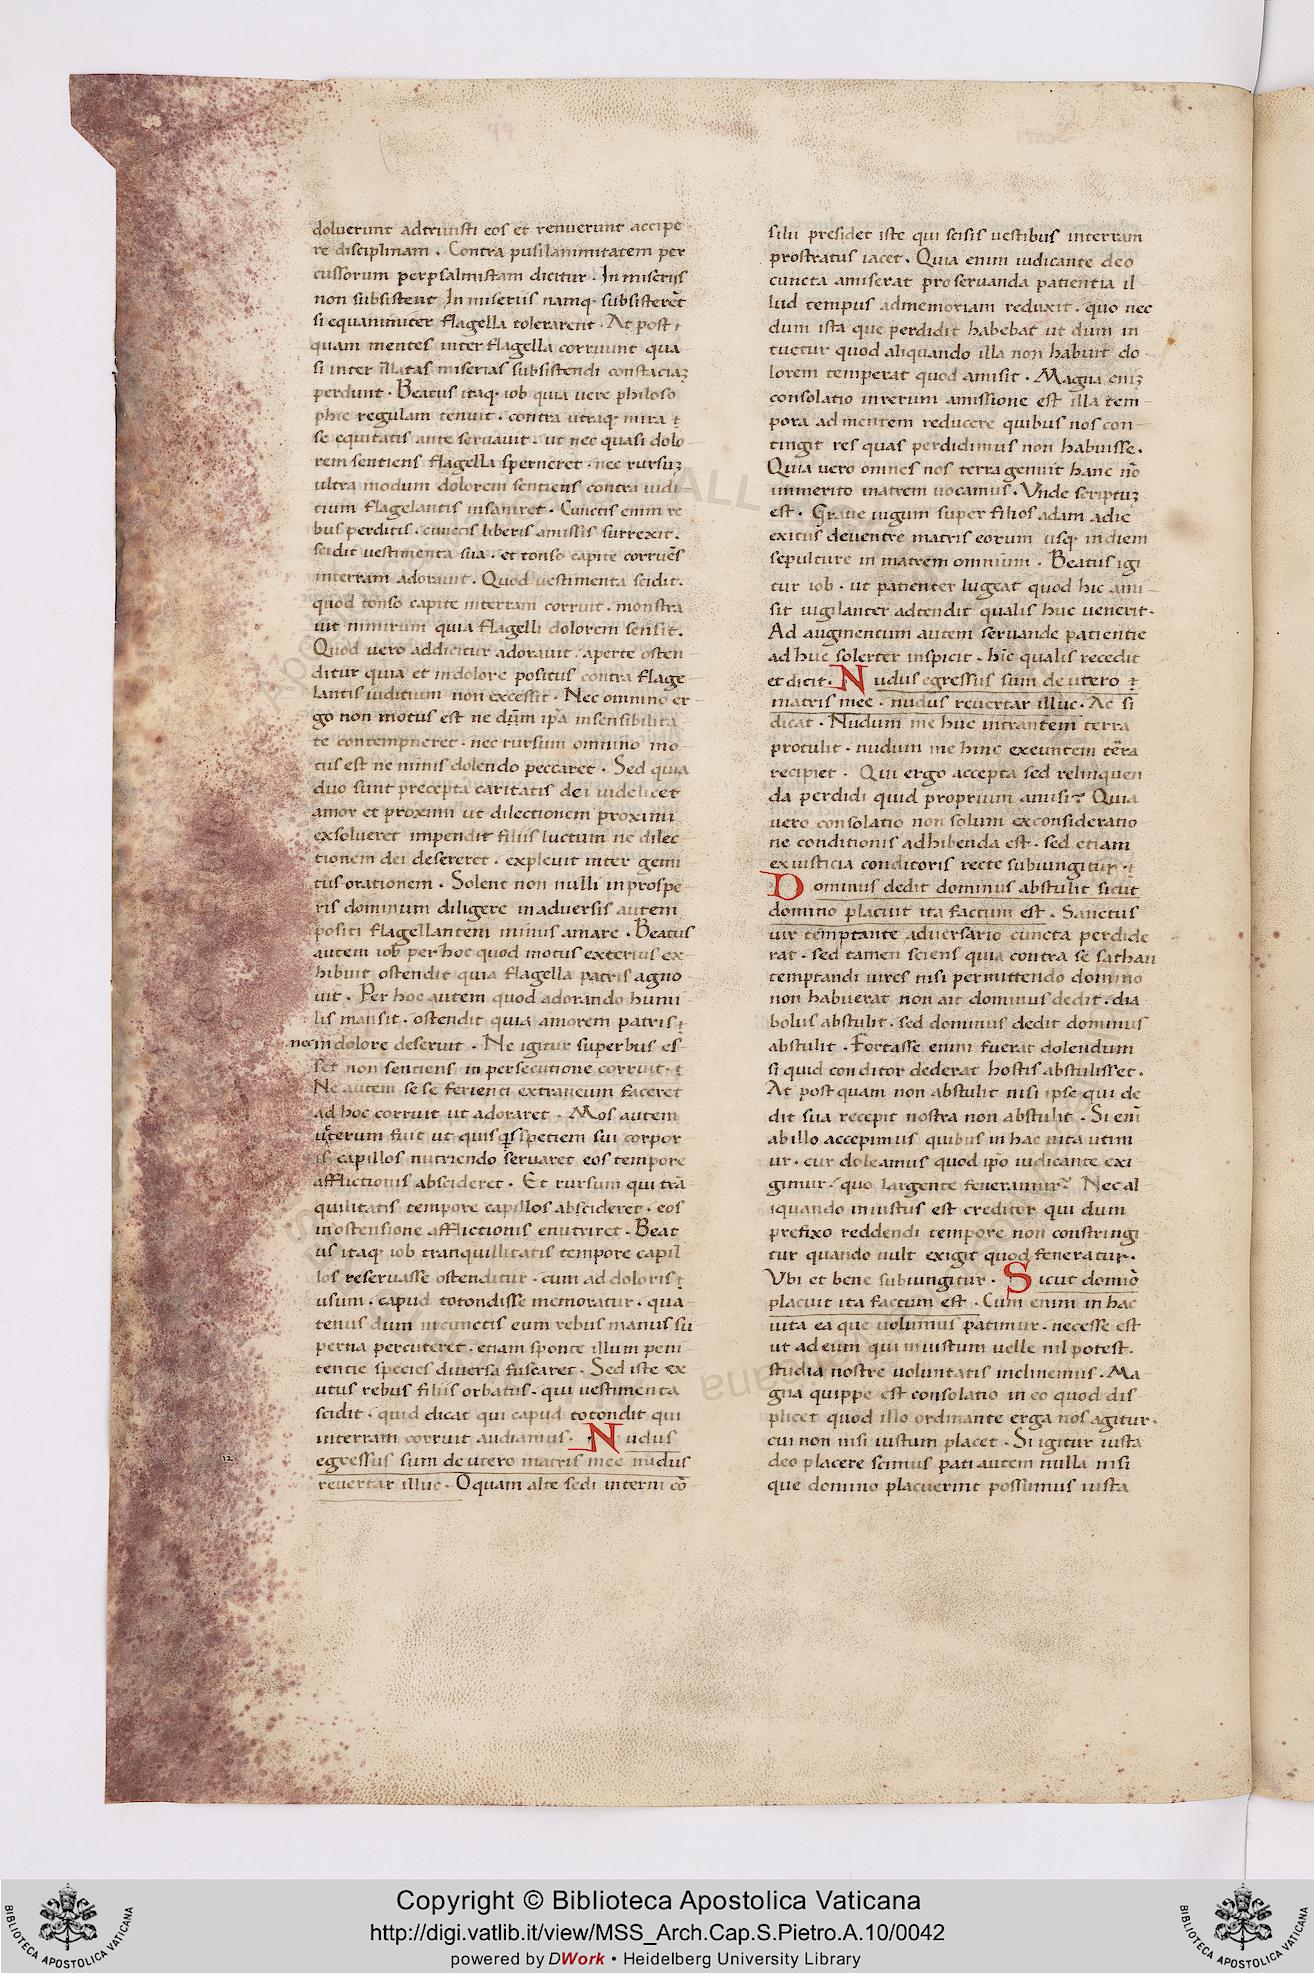 doluerunt adtriuisti eos et renuerunt accipe
re disciplinam . Contra pusilanimitatem per
cussorum per psalmistam dicitur . In miseriis
non subsistent In miseriis namq; subsisterēt
si equanimiter flagella tolerarent . At post
quam mentes inter flagella corruunt qua
si inter illatas miserias subsistendi constaciaꝫ
perdunt . Beatus itaq; iob quia uere philoso
phie regulam tenuit . contra utraq; mira
se equitatis ante seruauit . ut nec quasi dolo
rem sentiens flagella sperneret . nec rursuꝫ
ultra modum dolorem sentiens contra iudi
cium flagelantis insaniret . Cunctis enim re
bus perditis . cunctis liberis amissis surrexit .
scidit uestimenta sua . et tonso capite corruēs
interram adorauit . Quod uestimenta scidit .
quod tonso capite interram corruit . monstra
uit nimirum quia flagelli dolorem sensit .
Quod uero addicitur adorauit . aperte osten
ditur quia et indolore positus contra flage
lantis iuditium non excessit . Nec omnino er
go non motus est ne dum ipā insensibilita
te contempneret . nec rursum omnino mo
tus est ne nimis dolendo peccaret . Sed quia
duo sunt precepta caritatis dei uidelicet
amor et proximi ut dilectionem proximi
exsolueret impendit filiis luctum ne dilec
tionem dei desereret . expleuit inter gemi
tus orationem . Solent non nulli in prospe
ris dominum diligere inaduersis autem
positi flagellantem minus amare . Beatus
autem iob per hoc quod motus exterius ex
hibuit ostendit quia flagella patris agno
uit . Per hoc autem quod adorando humi
lis mansit . ostendit quia amorem patris
nec in dolore deseruit . Ne igitur superbus es
set non sentiens in persecutione corruit .
Ne autem se se ferienti extraneum faceret
ad hoc corruit ut adoraret . Mos autem
ueterum fuit ut quisquis spetiem sui corpor
is capillos nutriendo seruaret eos tempore
afflictionis abscideret . Et rursum qui trā
quilitatis tempore capillos abscideret . eos
inostensione afflictionis enutriret . Beat
us itaq; iob tranquillitatis tempore capil
los reseruasse ostenditur . cum ad doloris
usum . capud totondisse memoratur . qua
tenus dum incunctis eum rebus manus su
perna percuteret . etiam sponte illum peni
tentie species diuersa fuscaret . Sed iste ex
utus rebus filiis orbatus . qui uestimenta
scidit . quid dicat qui capud totondit qui
interram corruit audiamus . Nudus
egressus sum de utero matris mee nudus
reuertar illuc . O quam alte sedi interni cō
silii presidet iste qui scisis uestibus interram
prostratus iacet . Quia enim iudicante deo
cuncta amiserat pro seruanda patientia il
lud tempus admemoriam reduxit . quo nec
dum ista que perdidit habebat ut dum in
tuetur quod aliquando illa non habuit do
lorem temperat quod amisit . Magna eniꝫ
consolatio inrerum amissione est illa tem
pora ad mentem reducere quibus nos con
tingit res quas perdidimus non habuisse .
Quia uero omnes nos terra genuit hanc nō
immerito matrem uocamus . Vnde scriptuꝫ
est . Graue iugum super filios adam a die
exitus deuentre matris eorum usq; in diem
sepulture in matrem omnium . Beatus igi
tur iob . ut patienter lugeat quod hic ami
sit uigilanter adtendit qualis huc uenerit .
Ad augmentum autem seruande patientie
ad huc solerter inspicit . hīc qualis recedit
et dicit . Nudus egressus sum de utero
matris mee . nudus reuertar illuc . Ac si
dicat . Nudum me huc intrantem terra
protulit . nudum me hinc exeuntem terra
recipiet . Qui ergo accepta sed relinquen
da perdidi quid proprium amisi? Quia
uero consolatio non solum exconsideratio
ne conditionis adhibenda est . sed etiam
exiusticia conditoris recte subiungitur .
Dominus dedit dominus abstulit sicut
domino placuit ita factum est . Sanctus
uir temptante aduersario cuncta perdide
rat . sed tamen sciens quia contra se sathan
temptandi uires nisi permittendo domino
non habuerat non ait dominus dedit . dia
bolus abstulit . sed dominus dedit dominus
abstulit . Fortasse enim fuerat dolendum
si quid conditor dederat hostis abstulisset .
At post quam non abstulit nisi ipse qui de
dit sua recepit nostra non abstulit . Si enī
ab illo accepimus quibus in hac uita utim
ur . cur doleamus quod ipō iudicante exi
gimur . quo largente feneramur? Nec al
iquando iniustus est creditor qui dum
prefixo reddendi tempore non constringi
tur quando uult exigit quod feneratur .
Vbi et bene subiungitur . Sicut domiō
placuit ita factum est . Cum enim in hac
uita ea que uolumus patimur . necesse est
ut ad eum qui iniustum uelle nil potest .
studia nostre uoluntatis inclinemus . Ma
gna quippe est consolatio in eo quod dis
plicet quod illo ordinante erga nos agitur .
cui non nisi iustum placet . Si igitur iusta
deo placere scimus pati autem nulla nisi
que domino placuerint possumus iusta
12
Copyright © Biblioteca Apostolica Vaticana
http://digi.vatlib.it/view/MSS_Arch.Cap.S.Pietro.A.10/0042
powered by DWork • Heidelberg University Library
BIBLIOTECA APOSTOLICA VATICANA
BIBLIOTECA APOSTOLICA VATICANA